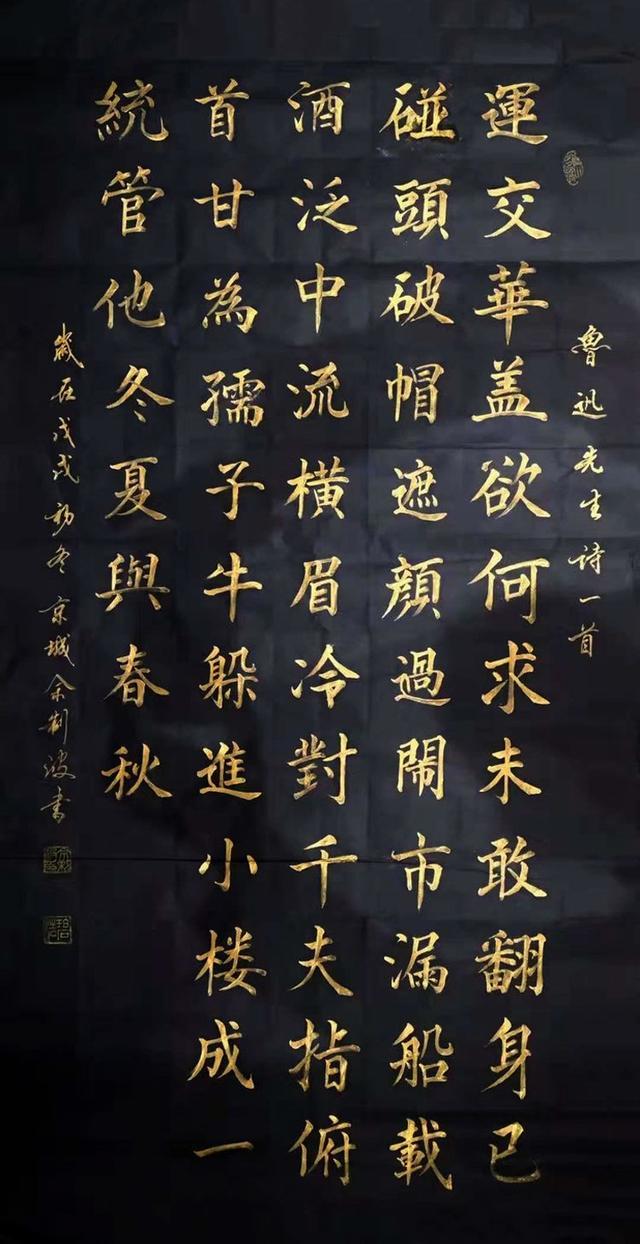 魯迅先生诗一首
運交華盖欲何求未敢翻身已
碰頭破帽遮顔過鬧市漏船載
酒泛中流橫眉冷對千夫指俯
首甘為孺子牛躲進小楼成一
統管他冬夏與春秋
歲在戊戌初冬京城余制波书